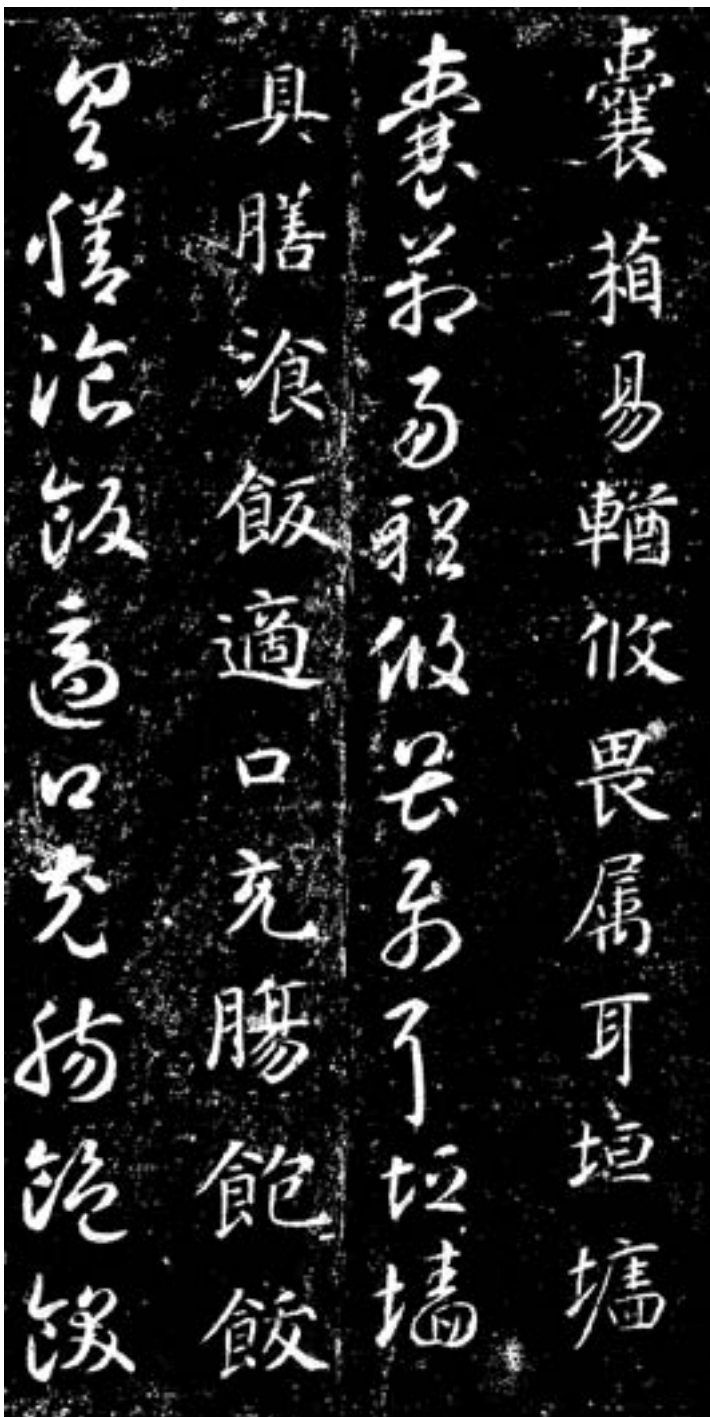 囊葙易輶攸畏属耳垣墻
囊葙易輶攸畏属耳垣墻
具膳湌飯適口充腸飽飫
具膳湌飯適口充腸飽飫